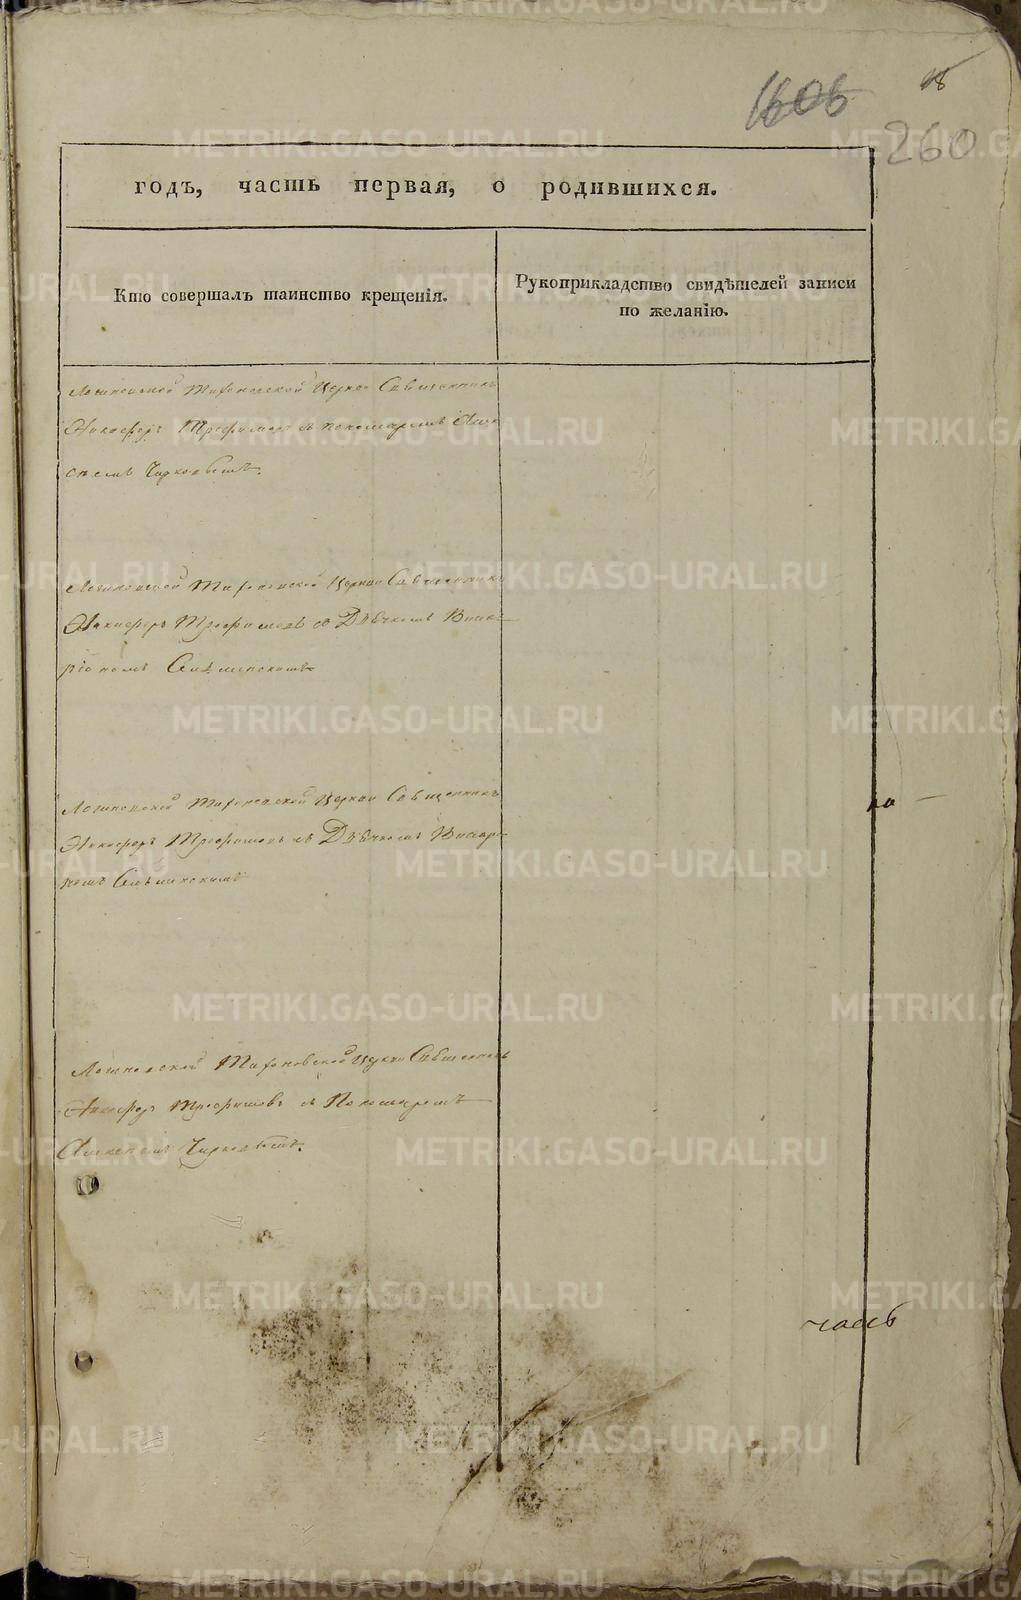 1606
18
260
годъ, часть первая, о родившихся.
Кто совершалъ таинство крещенія.
Рукоприкладство свидѣтелей записи
по желанію.
Логиновской Тихоновской Церкви Священникъ
Никифоръ Трофимовъ съ пономаремъ Алек-
сѣемъ Чирковымъ.
Логиновской Тихоновской Церкви Священникъ
Никифоръ Трофимовъ съ Дьячкомъ Висса-
ріономъ
Логиновской Тихоновской Церкви Священникъ
Никифоръ Трофимовъ съ Дьячкомъ
Логиновской Тихоновской Церкви Священникъ
Никифоръ Трофимовъ съ Пономаремъ
Алексѣемъ Чирковымъ.
на
часть
METRIKI.GASO-URAL.RU